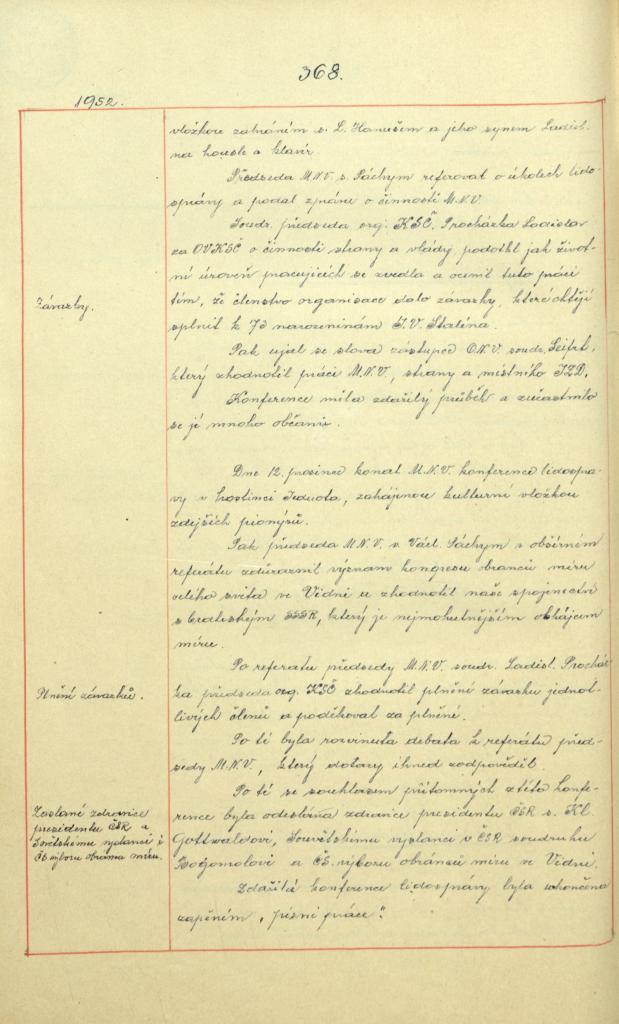 368.
1952.
vložkou zahráním s. L. Hanušem a jeho synem Ladisl.
na housle a klavír.
Předseda M.N.V. s. Páchym referoval o úkolech lido-
správy a podal zprávu o činnosti M.N.V.
Soudr. předseda org. KSČ. Procházka Ladislav
za OVKSČ o činnosti strany a vlády, podotkl jak život-
ní úroveň pracujících se zvedla a ocenil tuto práci
Závazky.
tím, že členstvo organisace dalo závazky, které chtějí
splnit k 73 narozeninám J. V. Stalina.
Pak ujal se slova zástupce O.N.V. soudr. Seifrt,
který zhodnotil práci M.N.V., strany a místního JZD.
Konference měla zdařilý průběh a zúčastnilo
se jí mnoho občanů.
Dne 12. prosince konal M.N.V. konferenci lidosprá-
vy v hostinci Jednota, zahájenou kulturní vložkou
zdejších pionýrů.
Pak předseda M.N.V. s. Václ. Páchym v obšírném
referátu zdůraznil význam kongresu obránců míru
celého světa ve Vídni a zhodnotil naše spojenectví
s bratrským SSSR, který je nejmohutnějším obhájcem
míru.
Po referátu předsedy M.N.V. soudr. Ladisl. Prochá-
Plnění závazků.
zka předseda org. KSČ zhodnotil plnění závazků jednot-
livých členů a poděkoval za plnění.
Po té byla rozvinuta debata k referátu před-
sedy M.N.V., který dotazy ihned zodpověděl.
Po té se souhlasem přítomných z této konfe-
Zaslané zdravice
rence byla odeslána zdravice presidentu ČSR s. Kl.
presidentu ČSR a
Gottwaldovi, Sovětskému vyslanci v ČSR soudruhu
Sovětskému vyslanci i
Bogomolovi a ČS. výboru obránců míru ve Vídni.
ČS výboru obránců míru.
Zdařilá konference lidosprávy byla ukončena
zapěním „písní práce“.